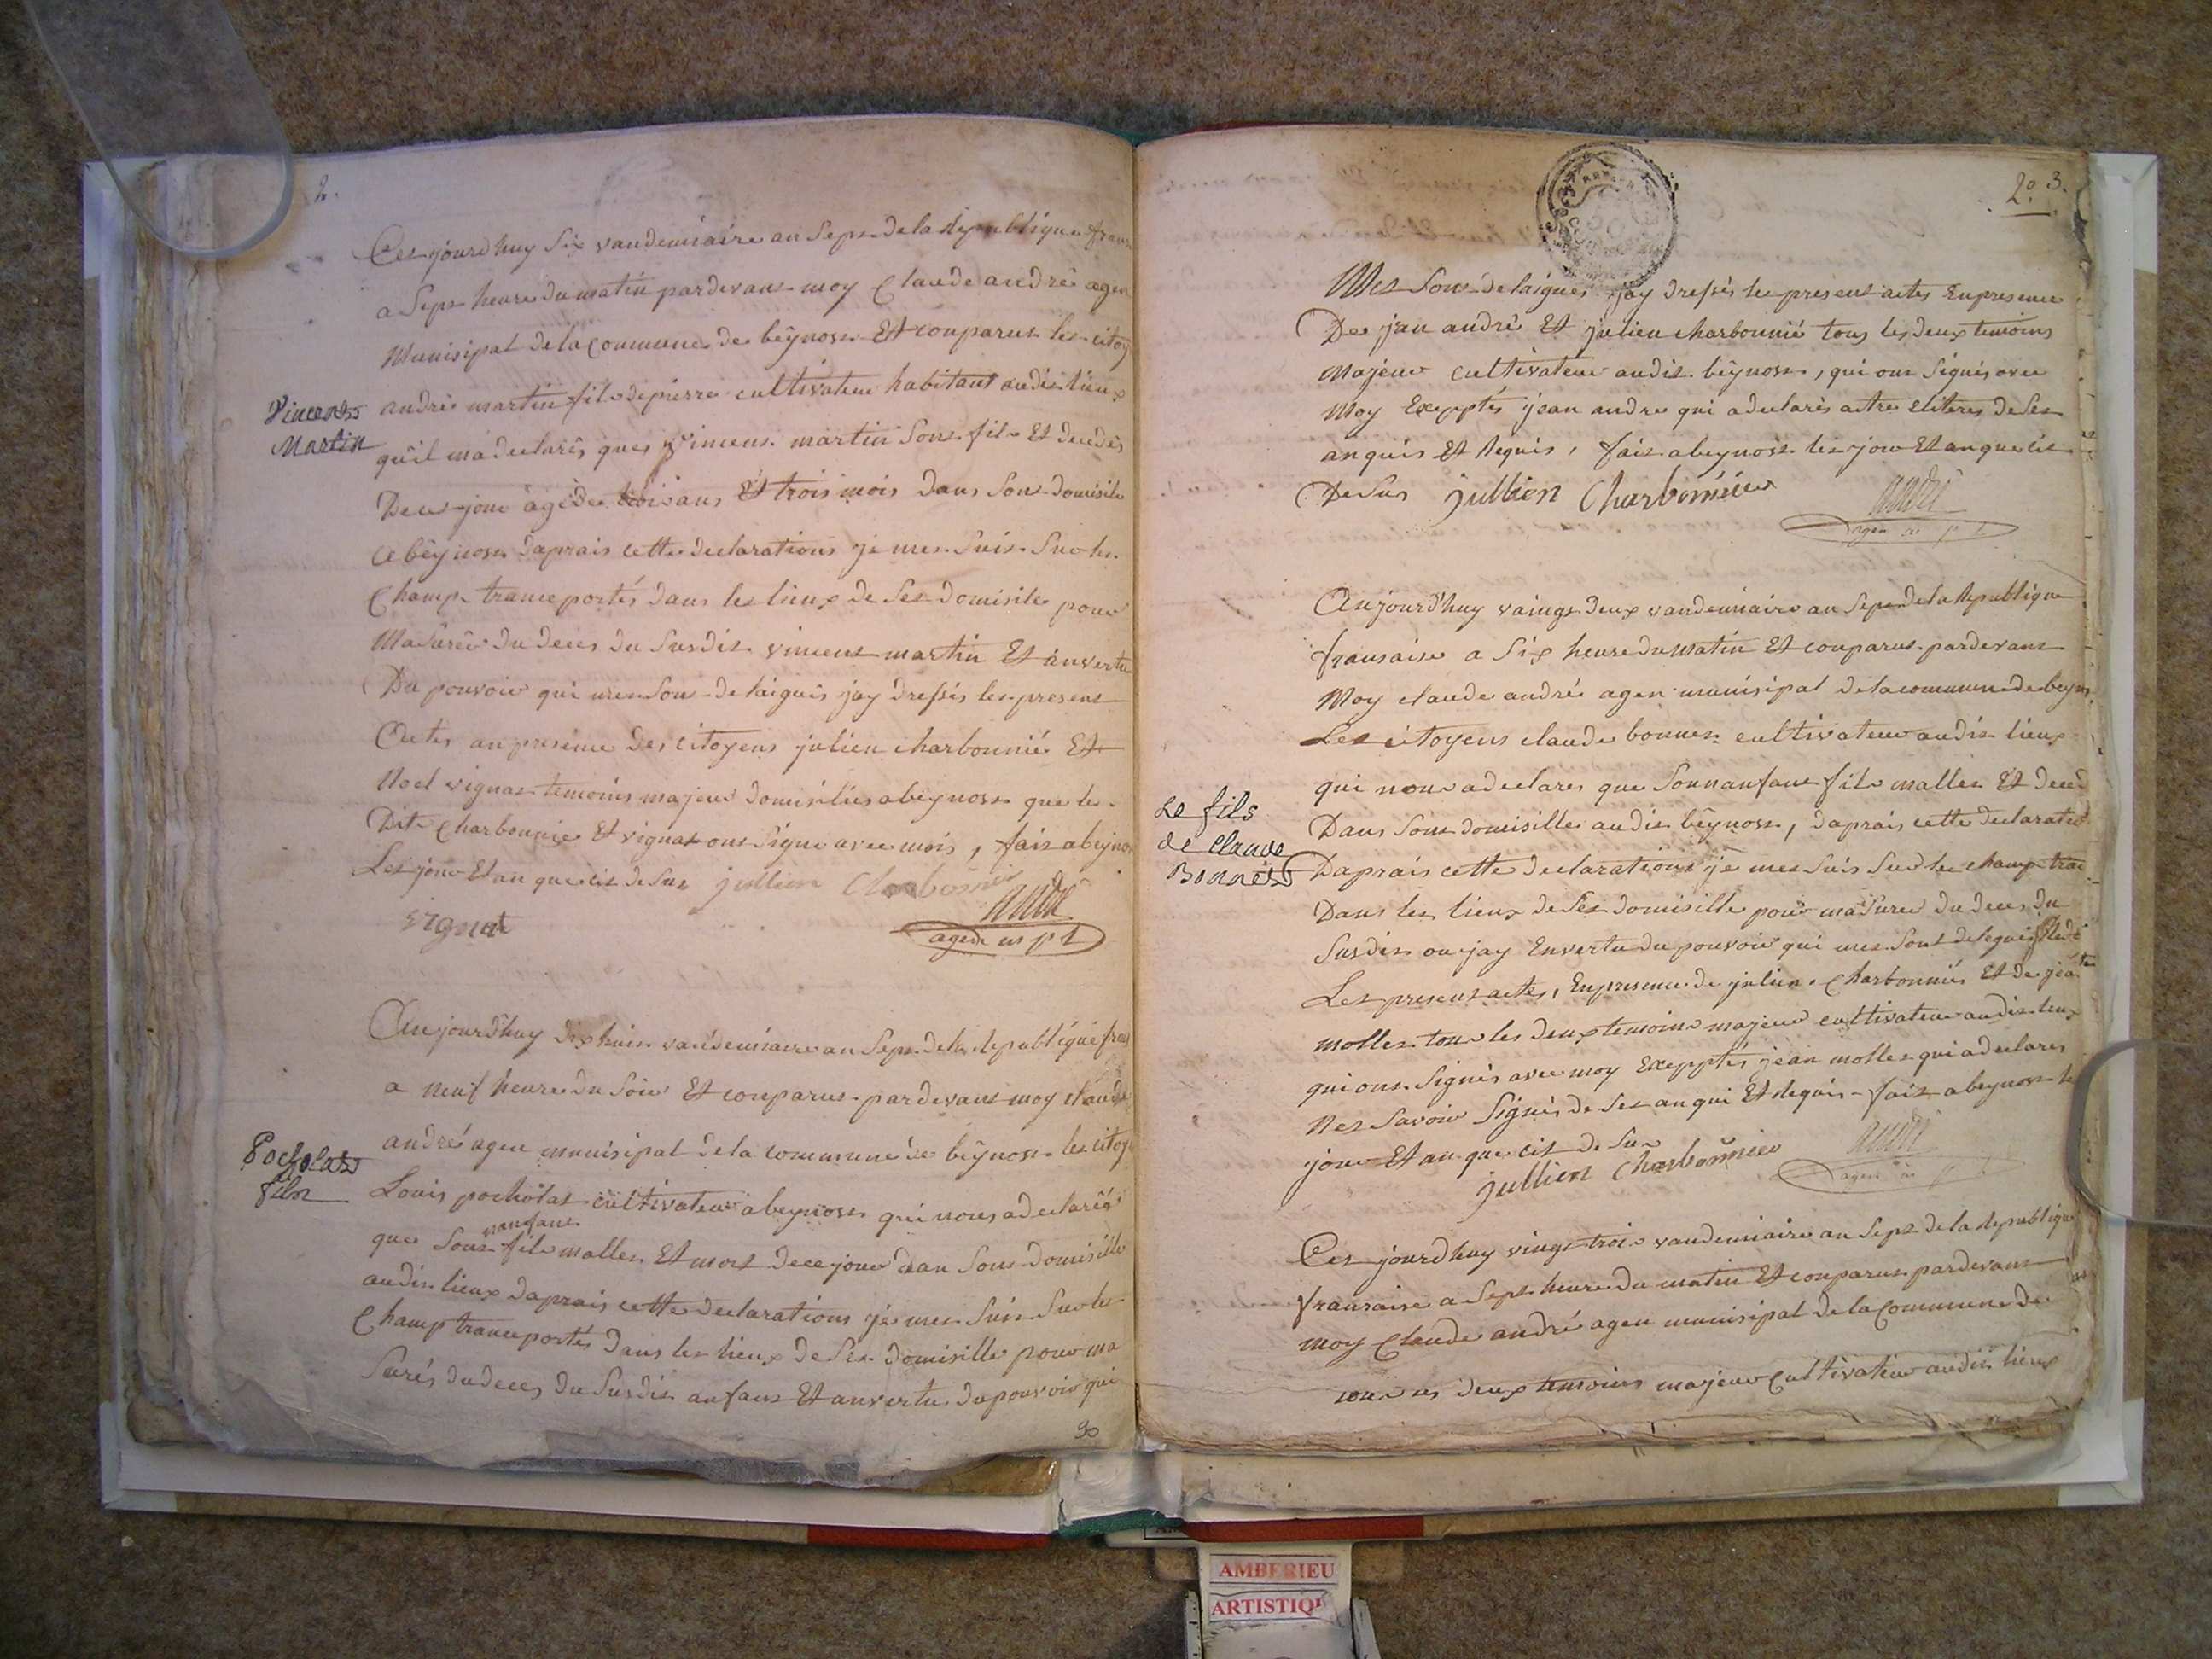 2.
Ces jourd'huy Six vandemiaire an Sept de la Republique fran
a Sept heure du matin pardevant moy Claude andré agen
Munisipal de la Commune de beÿnost Et conparut les citoy
andré martin fils de pierre cultivateur habitant audit lieux
Vincent
Martin
qu'il ma declarés ques vincent martin Sont fils Et decedés
De ce jour agé de trois ans Et trois mois Dans Sont domisile
a beÿnost Daprais cette declarations je mes Suis Sur les
Champ tranceportés Dans les lieux de Ses Domisiles pour
Masurér du deces du Susdit vincent martin Et anvertu
Du pouvoir qui mes Sont delaigués jay dressés les present
Actes an presence Des citoyens julien charbonnié Et
Noel vignat temoins majeur domisiliés a beynost que les
Dits Charbonnié Et vignat ont Signe avec mois, fait a beyno
Les jour Et an que cit de Sus jullien Charbonnier
vignat
andré
agent m p l
Aujourd'huy dix huit vandemiaire an Sept de la Republique fran
a neuf heure du Soir Et conparut pardevant moy claude
andré agen munisipal de la commune de beÿnost les citoy
Pocholat
fils
Louis pocholat cultivateur a beynost qui nous a declarés
nanfant
que Sont fils malles Et mort de ce jour dan Sont domisille
audit lieux Daprais cette declarations je mes Suis Sur les
Champ tranceportés Dans les lieux de Ses domisille pour ma
Surés du deces du Susdit anfant Et anvertu du pouvoir qui
2º 3.
Mes Sont delaigués jay dressés les present actes Enpresence
De jan andré Et julien charbonnié tous les deux temoins
Majeur cultivateur audit beÿnost, qui ont Signés avec
Moy Exepptés jean andre qui a declarés
anquis Et Requis, fait a beynost les jour Et an que cit
De Sus jullien Charbonnier
andré
agen m p l
Aujourd'huy vaingt deux vandemiaire an Sept de la Republique
fransaise a Six heure du matin Et conparut pardevant
Moy claude andré agen munisipal de la commune de beyno
Les citoyens claude bonnet cultivateur audit lieux
qui nous a declarés que Sonnanfant fils malles Et deced
Le fils
de Claude
Bonnet
Dans Sont domisille audit bêynost, daprais cette declaration
Daprais cette declarations je mes Suis Sur les champ tran
Dans les lieux de Ses domisille pour masurer du deces du
Susdit ou jay Envertu du pouvoir qui mes Sont delegués
Les present actes, Enpresence de julien Charbonniés Et de jean
molles tous les deux temoins majeur cultivateur audit lieux
qui ont Signés avec moy Exepptés jean molles qui a declares
Nes Savoir Signés de Ses anqui Et Requis - fait a beynost le
jour Et an que cit de Sus
jullien Charbonnier
andré
agen m p l
Ces jourd'huy vingt trois vandemiaire an Sept de la Republique
fransaise a Sept heure du matin Et conparut pardevant
moy Claude andré agen munisipal de la Commune de
tous les deux temoins majeur Cultivateur audit lieux
AMBERIEU
ARTISTIQU